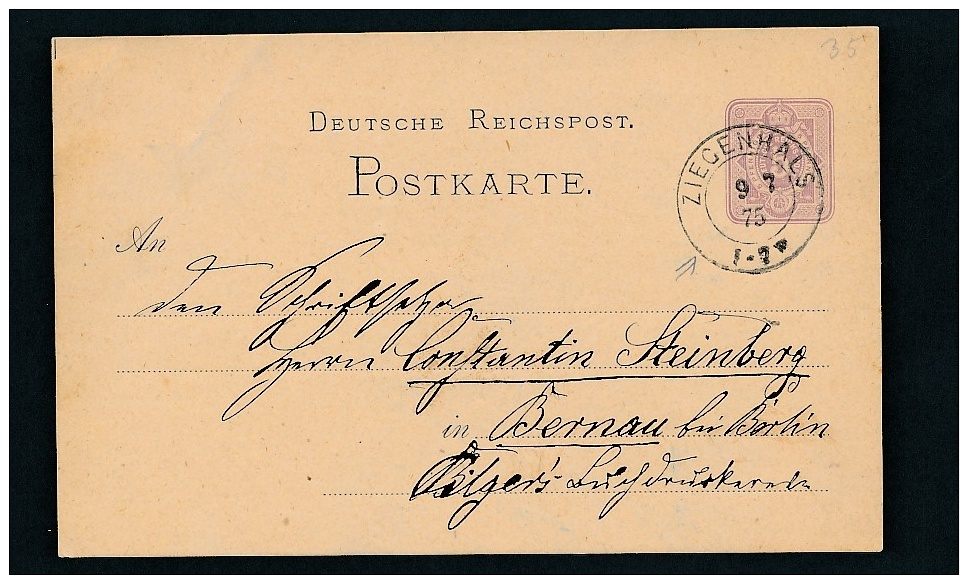 35
DEUTSCHE REICHSPOST.
POSTKARTE.
ZIEGENHALS
9 7
75
1-2
An
den Schriftsetzer
Herrn Constantin Steinberg
in Bernau bei Berlin
Bilger's Buchdruckerei